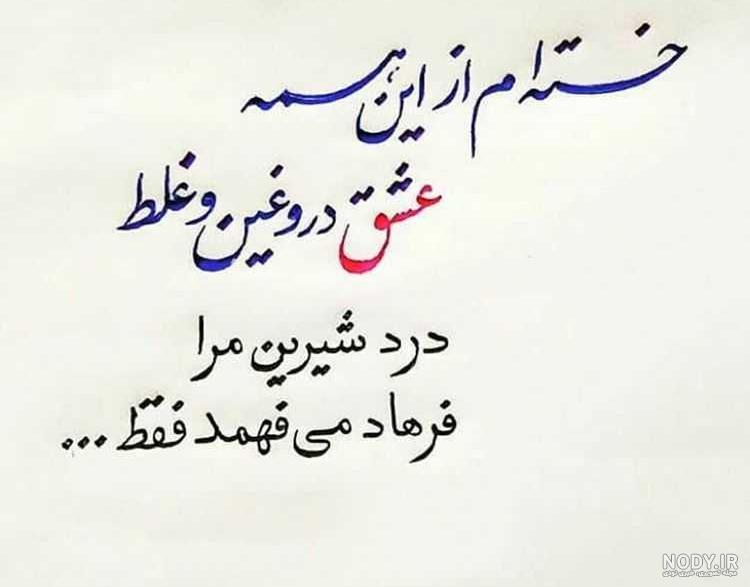 خسته ام از این همه
عشق دروغین و غلط
درد شیرین مرا
فرهاد می فهمد فقط ...
NODY.IR